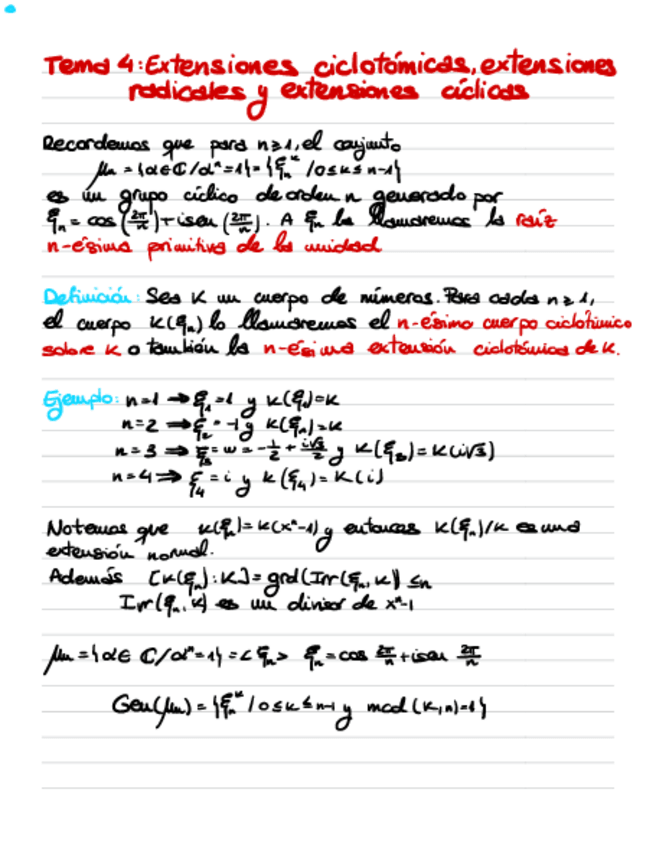 Tema 4: Extensiones ciclotómicas, extensiones
radicales y extensiones cíclicas
Recordemos que para n≥1, el conjunto
μₙ = {α∈ℂ/αⁿ=1} = {ξₙᵏ /0≤k≤n-1}
es un grupo cíclico de orden n generado por
ξₙ = cos(2π/n)+isen(2π/n). A ξₙ la llamaremos la raíz
n-ésima primitiva de la unidad
Definición: Sea K un cuerpo de números. Para cada n≥1,
el cuerpo K(ξₙ) lo llamaremos el n-ésimo cuerpo ciclotómico
sobre K o también la n-ésima extensión ciclotómica de K.
Ejemplo: n=1 → ξ₁=1 y K(ξ₁)=K
n=2 ⇒ ξ₂=-1 y K(ξₙ)=K
n=3 ⇒ ξ₃=w=-1/2+i√3/2 y K(ξ₃)=K(i√3)
n=4 ⇒ ξ₄=i y K(ξ₄)=K(i)
Notemos que K(ξₙ)=K(xⁿ-1) y entonces K(ξₙ)/K es una
extensión normal.
Además [K(ξₙ):K]=grd(Irr(ξₙ,K)) ≤n
Irr(ξₙ,K) es un divisor de xⁿ-1
μₙ={α∈ℂ/αⁿ=1}=<ξₙ> ξₙ=cos 2π/n+isen 2π/n
Gen(μₙ)={ξₙᵏ/0≤k≤n-1 y mcd(k,n)=1}